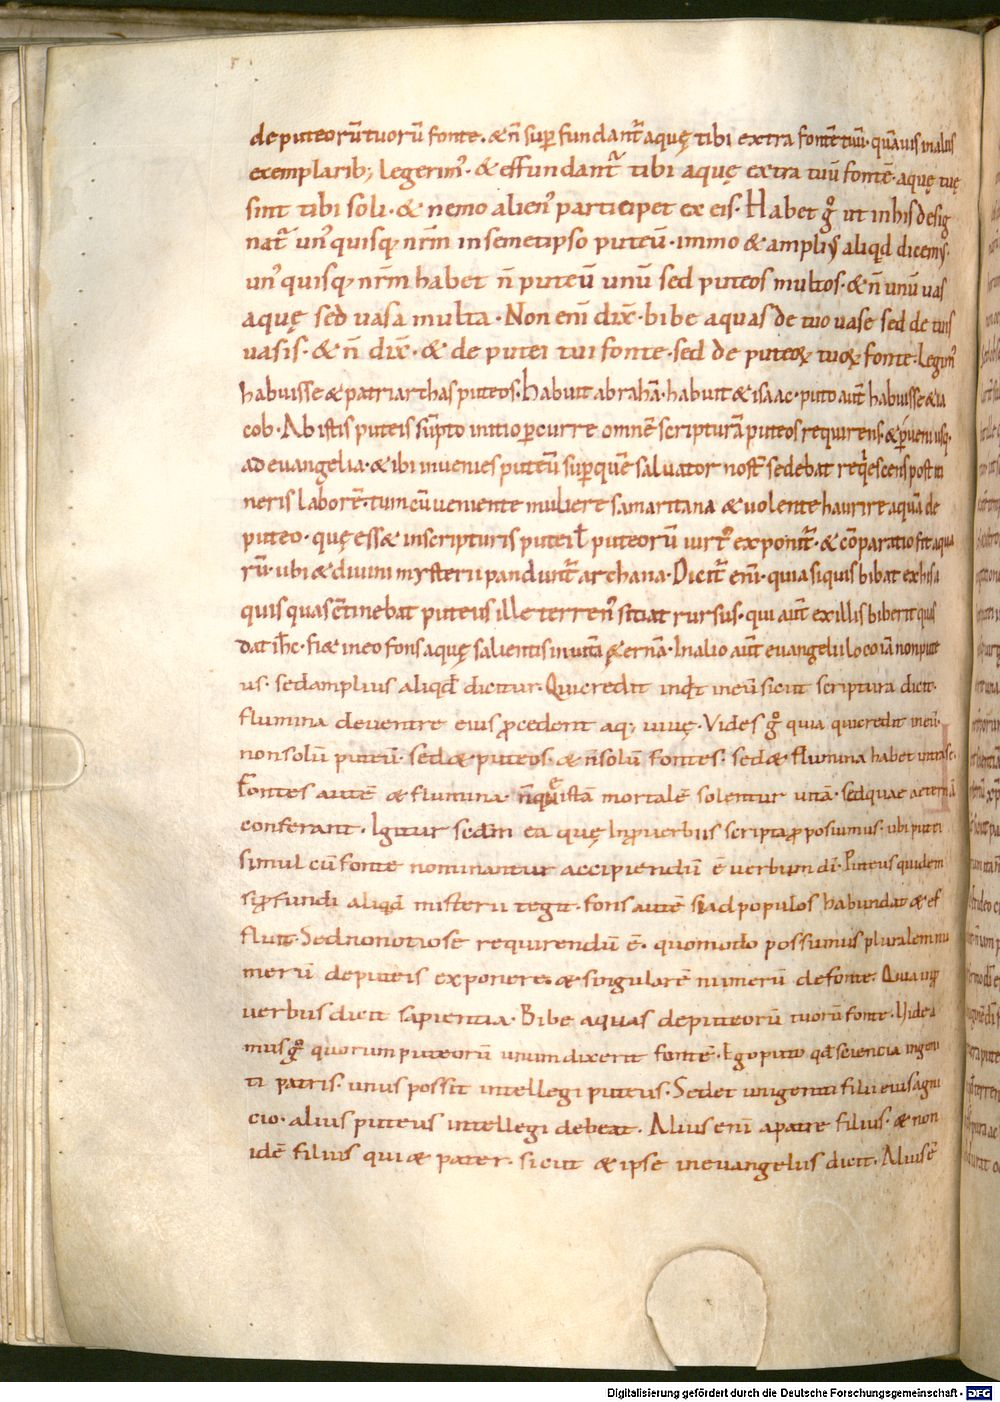 de puteorū tuorū fonte. & n̄ sup fundant̄ aquę tibi extra fontē tuū. quāuis in aliis
exemplarib; legerim᾽. & effundant̄ tibi aquę extra tuū fontē. aquę tuę
sint tibi soli. & nemo alien᾽ participet ex eis. Habet g̊ ut in his desig
nat̄ un᾽ quisq; nr̄m in semetipso puteū. immo & ampli᾽ aliqd dicem᾽.
un᾽ quisq; nr̄m habet n̄ puteū unū sed puteos multos. & n̄ unū uas
aquę sed uasa multa. Non eni dix̄. bibe aquas de tuo uase sed de tuis
uasis. & n̄ dix̄. & de putei tui fonte. sed de puteoꝝ tuoꝝ fonte. Legim᾽
habuisse & patriarchas puteos. Habuit abrahā. habuit & isaac. puto aut̄ habuisse & ia
cob. Ab istis puteis sūpto initio ꝑcurre omnē scripturā puteos requirens. & ꝑueni usq;
ad euangelia. & ibi inuenies puteū sup quē saluator nost̄ sedebat reqͥescens post iti
neris laborē. tum cū ueniente muliere samaritana & uolente haurire aquā de
puteo. quę ess& in scripturis putei ł puteorū uirt᾽ exponit̄. & cōparatio fit aqua
rū. ubi & diuini mysterii pandunt̄ archana. Dicit̄ eni. quia siquis bibat ex his a
quis quas cōtinebat puteus ille terren᾽ sitiat rursus. qui aut̄ ex illis biberit quas
dat ih̄c. fi& in eo fons aquę salientis in uitā ęternā. In alio aut̄ euangelii loco iā non pute
us. sed amplius aliqd dicitur. Qui credit inq̄t in eū sicut scriptura dicit.
flumina de uentre eius ꝓcedent aq; uiuę. Vides g̊ quia qui credit in eū.
non solū puteū. sed & puteos. & n̄ solū fontes. sed & flumina habet intra se.
Fontes autē & flumina. n̄ quę istā mortalē solentur uitā. sed quae aeternā
conferant. Igitur scd̄m ea quę in ꝓuerbiis scripta ꝓposuimus. ubi putei
simul cū fonte nominantur accipiendū ē uerbum dī. Puteus quidem
si ꝓfundi aliqd misterii tegit. fons autē si ad populos habundat & ef
fluit. Sed non otiose requirendū ē. quomodo possumus pluralem nu
merū de puteis exponere. & singularē numerū de fonte. Qua in ꝓ
uerbiis dicit sapientia. Bibe aquas de puteorū tuorū fonte. Videa
mus g̊ quorum puteorū unum dixerit fontē. Ego puto qd scientia ingeni
ti patris. unus possit intellegi puteus. Sed et unigeniti filii eius agni
cio. alius puteus intellegi debeat. Alius eni a patre filius. & non
idē filius qui & pater. sicut & ipse in euangeliis dicit. Alius ē
Digitalisierung gefördert durch die Deutsche Forschungsgemeinschaft - DFG